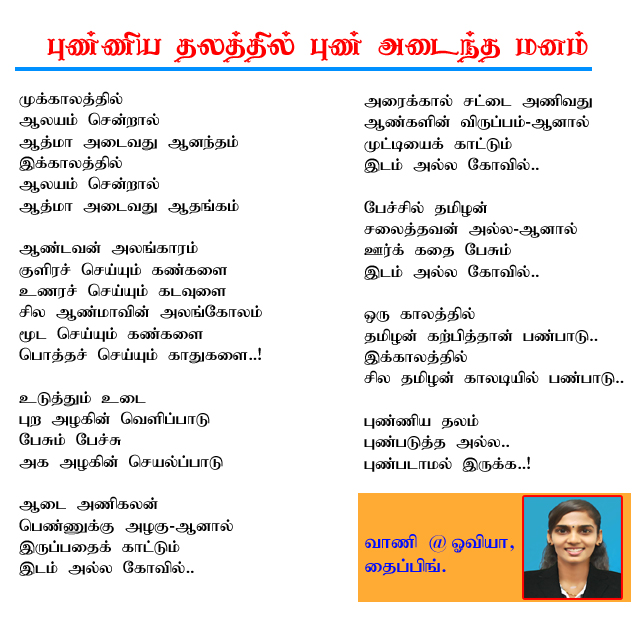 புண்ணிய தலத்தில் புண் அடைந்த மனம்
முக்காலத்தில்
ஆலயம் சென்றால்
ஆத்மா அடைவது ஆனந்தம்
இக்காலத்தில்
ஆலயம் சென்றால்
ஆத்மா அடைவது ஆதங்கம்
ஆண்டவன் அலங்காரம்
குளிரச் செய்யும் கண்களை
உணரச் செய்யும் கடவுளை
சில ஆண்மாவின் அலங்கோலம்
மூட செய்யும் கண்களை
பொத்தச் செய்யும் காதுகளை..!
உடுத்தும் உடை
புற அழகின் வெளிப்பாடு
பேசும் பேச்சு
அக அழகின் செயல்ப்பாடு
ஆடை அணிகலன்
பெண்ணுக்கு அழகு-ஆனால்
இருப்பதைக் காட்டும்
இடம் அல்ல கோவில்..
அரைக்கால் சட்டை அணிவது
ஆண்களின் விருப்பம்-ஆனால்
முட்டியைக் காட்டும்
இடம் அல்ல கோவில்..
பேச்சில் தமிழன்
சலைத்தவன் அல்ல-ஆனால்
ஊர்க் கதை பேசும்
இடம் அல்ல கோவில்..
ஒரு காலத்தில்
தமிழன் கற்பித்தான் பண்பாடு..
இக்காலத்தில்
சில தமிழன் காலடியில் பண்பாடு..
புண்ணிய தலம்
புண்படுத்த அல்ல..
புண்படாமல் இருக்க..!
வாணி @ ஓவியா,
தைப்பிங்.